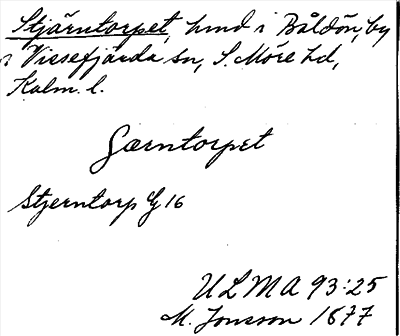 Stjärntorpet, hmd i Båldön, by
i Vissefjärda sn, S. Möre hd,
Kalm. l.
Særntorpet
Stjerntorp Eg 16
ULMA 93:25
M. Jonsson 1877